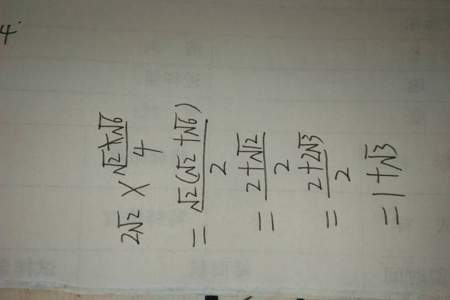 4.
2√2 × (√2+√6)/4
= √2(√2+√6)/2
= (2+√12)/2
= (2+2√3)/2
= 1+√3